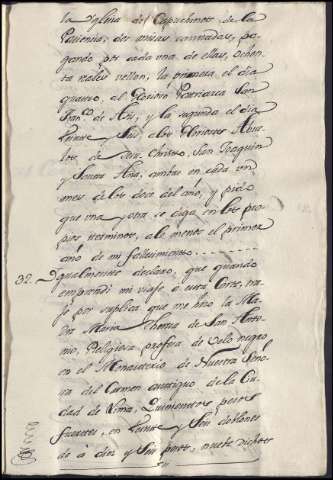 la Yglesia del Capuchinos de la
Paciencia, dos misas cantadas, pa-
gando por cada una de ellas, ochen-
ta reales vellon, la primera el dia
quatro, al Glorioso Patriarca San
Franco. de Asis, y la segunda el dia
veinte y seis a los Gloriosos Abue-
los de Jesu-Christo, San Joaquin
y Santa Ana, ambas en cada un
mes de los doce del año, y pido
que una y otra se diga, en los pro-
pios terminos, a lo menos el primer
año de mi fallecimiento.
32. Ygualmente declaro, que quando
emprendi mi viaje à esta Corte, tra-
je por suplica que me hizo la Ma-
dre Maria Theresa de San Anto-
nio, Religiosa profesa de Velo negro,
en el Monasterio de Nuestra Seño-
ra del Carmen antiguo de la Ciu-
dad de Lima, Quinientos pesos
fuertes, en veinte y seis doblones
de à diez y seis pesos, nueve